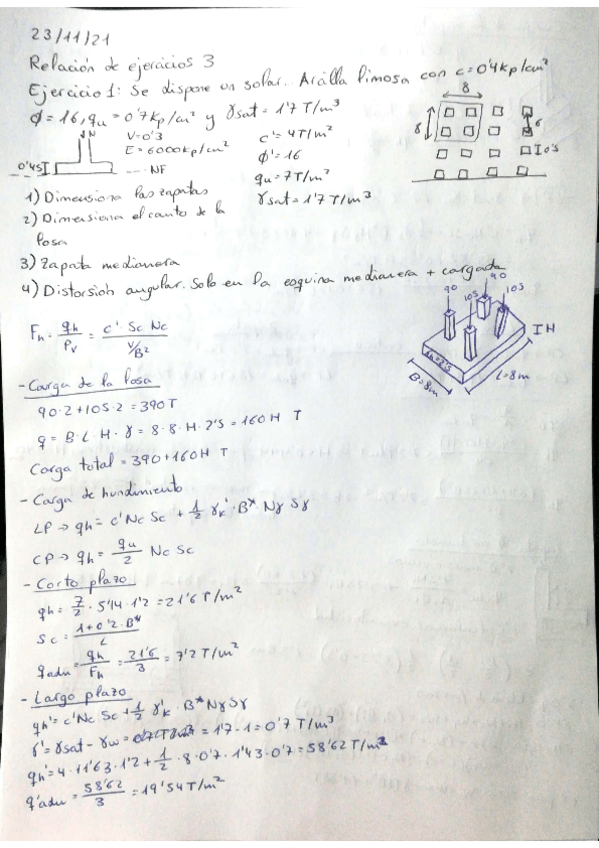 23/11/21
Relación de ejercicios 3
Ejercicio 1: Se dispone un solar.. Arcilla limosa con c=0'4Kp/cm²
ϕ=16, qu=0'7Kp/cm² y γsat=1'7 T/m³
N
V=0'3
E=6000Kp/cm²
0'45 I
--- NF
c'=4T/m²
ϕ'=16
qu=7T/m²
γsat=1'7 T/m³
8
8
6
I 0's
1) Dimensiona las zapatas
2) Dimensiona el canto de la
losa
3) Zapata medianera
4) Distorsión angular. Solo en la esquina medianera + cargada
90
105
90
105
I H
B=8m
L=8m
Fh · qh/Pv = c' Sc Nc / V/B²
- Carga de la losa
90·2+105·2=390T
q=B·L·H·γ=8·8·H·2's=160H T
Carga total=390+160H T
- Carga de hundimiento
LP → qh=c'Nc Sc + 1/2 γ'k·B* Nγ Sγ
CP → qh= qu/2 Nc Sc
- Corto plazo
qh= 7/2 · 5'14·1'2=21'6 T/m²
Sc= 1+0'2·B*/L
qadm= qh/Fh = 21'6/3 = 7'2 T/m²
- Largo plazo
qh'=c'Nc Sc + 1/2 γ'k · B* Nγ Sγ
γ'=γsat-γw= =1'7-1=0'7 T/m³
qh'=4·11'63·1'2+ 1/2 ·8·0'7·1'43·0'7=58'62 T/m²
q'adm= 58'62/3 =19'54 T/m²